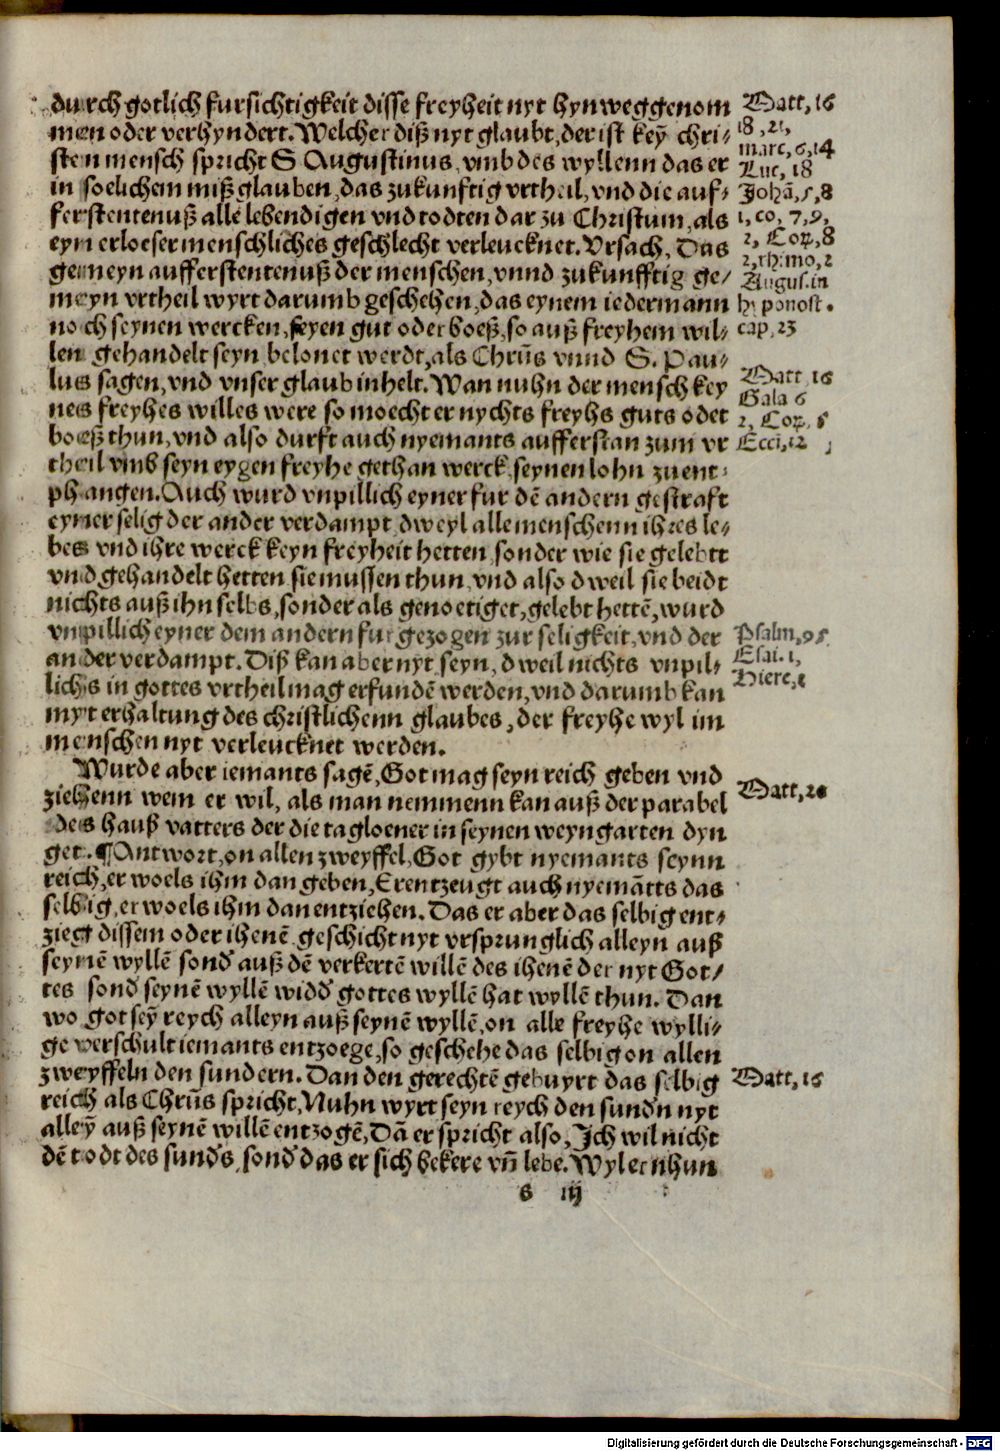 durch gotlich fursichtigkeit disse freyheit nyt hynweggenom
men oder verhyndert. Welcher diß nyt glaubt, der ist keỹ chri-
sten mensch spricht S Augustinus, vmb des wyllenn das er
in soelichem mißglauben, das zukunftig vrtheil, vnd die auf-
ferstentenuß alle lebendigen vnd todten dar zu Christum, als
eyn erloeser menschliches geschlecht verleucknet. Vrsach, Das
gemeyn aufferstentenuß der menschen, vnnd zukunfftig ge/
meyn vrtheil wyrt darumb geschehen, das eynem iedermann
noch seynen wercken, seyen gut oder boeß, so auß freyhem wil-
len gehandelt seyn belonet werdt, als Chrũs vnnd S. Pau-
lus sagen, vnd vnser glaub inhelt. Wan nuhn der mensch key
nes freyhes willes were so moecht er nychts freyhs guts odet
boeeß thun, vnd also durft auch nyemants aufferstan zum vr
theil vmb seyn eygen freyhe gethan werck, seynen lohn zu ent-
phangen. Auch wurd vnpillich eyner fur dẽ andern gestraft
eyner selig der ander verdampt, dweyl alle menschenn ihres le-
bes vnd ihre werck keyn freyheit hetten, sonder wie sie gelebtt
vnd gehandelt hetten sie mussen thun, vnd also dweil sie beidt
nichts auß ihn selbs, sonder als genoetiget, gelebt hettẽ, wurd
vnpillich eyner dem andern fur gezogen zur seligkeit, vnd der
ander verdampt. Diß kan aber nyt seyn, dweil nichts vnpil-
lichs in gottes vrtheil mag erfundẽ werden, vnd darumb kan
myt erhaltung des christlichenn glaubes, der freyhe wyl im
menschen nyt verleucknet werden.
Wurde aber iemants sagẽ, Got mag seyn reich geben vnd
ziehenn wem er wil, als man nemmenn kan auß der parabel
des hauß vatters der die tagloener in seynen weyngarten dyn
get. ¶Antwort, on allen zweyffel, Got gybt nyemants seynn
reich, er woels ihm dan geben, Er entzeugt auch nyemãtts das
selbig, er woels ihm dan entziehen. Das er aber das selbig ent-
ziegt dissem oder ihenẽ geschicht nyt vrsprunglich alleyn auß
seynẽ wyllẽ sond̕ auß dẽ verkertẽ willẽ des ihenẽ der nyt Got/
tes sond̕ seynẽ wyllẽ widd̕ gottes wyllẽ hat wyllẽ thun. Dan
wo got seỹ reych alleyn auß seynẽ wyllẽ, on alle freyhe wylli-
ge verschult iemants entzoege, so geschehe das selbig on allen
zweyffeln den sundern. Dan den gerechtẽ gebuyrt das selbig
reich als Chrũs spricht, Nuhn wyrt seyn reych den sund̕n nyt
alleỹ auß seynẽ willẽ entzogẽ, Dã er spricht also, Ich wil nicht
dẽ todt des sund̕s, sond̕ das er sich bekere vñ lebe. Wyl er nhun
s iij
Matt, 16
18, 21,
marc, 6, 14
Luc, 18
Johã, 5, 8
1, co, 7, 9,
2, Cor, 8
2, thimo, 2
Augus. in
hyponost.
cap, 23
Matt 16
Gala 6
2, Cor, 5
Eccl, 12
Psalm, 95
Esai. 1,
Hiere, 1
Matt, 20
Matt, 16
Digitalisierung gefördert durch die Deutsche Forschungsgemeinschaft - DFG